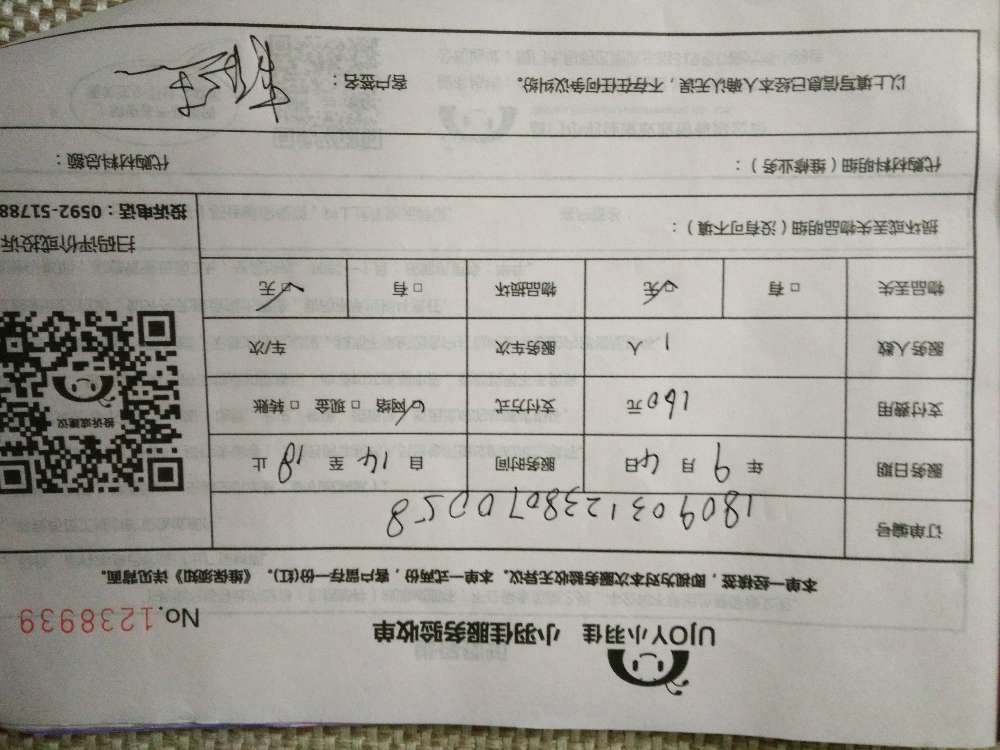 UJOY小羽佳 小羽佳服务验收单 No.1238939
本单一经接签，即视为对本次服务验收无异议。本单一式两份，客户留存一份(红)。《维保须知》详见背面。
订单编号 180903123807 0058
服务日期 年 9 月 4 日 服务时间 自 14 至 18 止
支付费用 160 元 支付方式 网络 现金 转账
服务人数 1 人 服务车次 车/次
物品丢失 有 无 物品损坏 有 无
损坏或丢失物品明细（没有可不填）：
投诉或建议
扫码评价或投诉
投诉电话：0592-51788
代购材料明细（维修业务）： 代购材料总额：
以上填写信息已经本人确认无误，不存在任何争议纠纷。 客户签名：